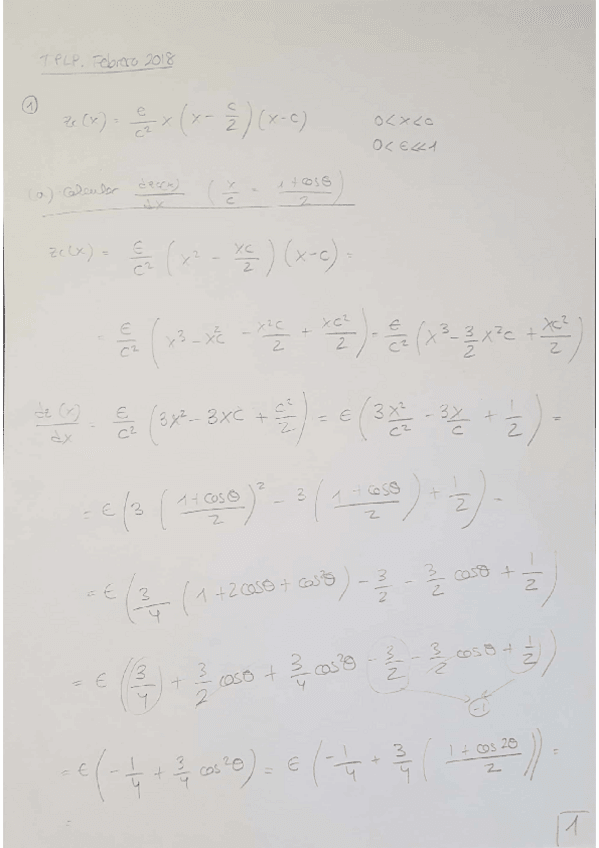 TPLP. Febrero 2018
① ze(x) = e/c² x (x - c/2) (x-c)    0<x<c
0<ε≪1
(a) Calcular dze(x)/dx (x/c = (1+cosθ)/2)
ze(x) = ε/c² (x² - xc/2) (x-c) =
= ε/c² (x³ - x²c - x²c/2 + xc²/2) = ε/c² (x³ - 3/2 x²c + xc²/2)
dze(x)/dx = ε/c² (3x² - 3xc + c²/2) = ε (3x²/c² - 3x/c + 1/2) =
= ε (3 ((1+cosθ)/2)² - 3 ((1+cosθ)/2) + 1/2) =
= ε (3/4 (1+2cosθ+cos²θ) - 3/2 - 3/2 cosθ + 1/2)
= ε (3/4 + 3/2 cosθ + 3/4 cos²θ - 3/2 - 3/2 cosθ + 1/2)
-1
= ε (-1/4 + 3/4 cos²θ) = ε (-1/4 + 3/4 ((1+cos2θ)/2)) =
=
1